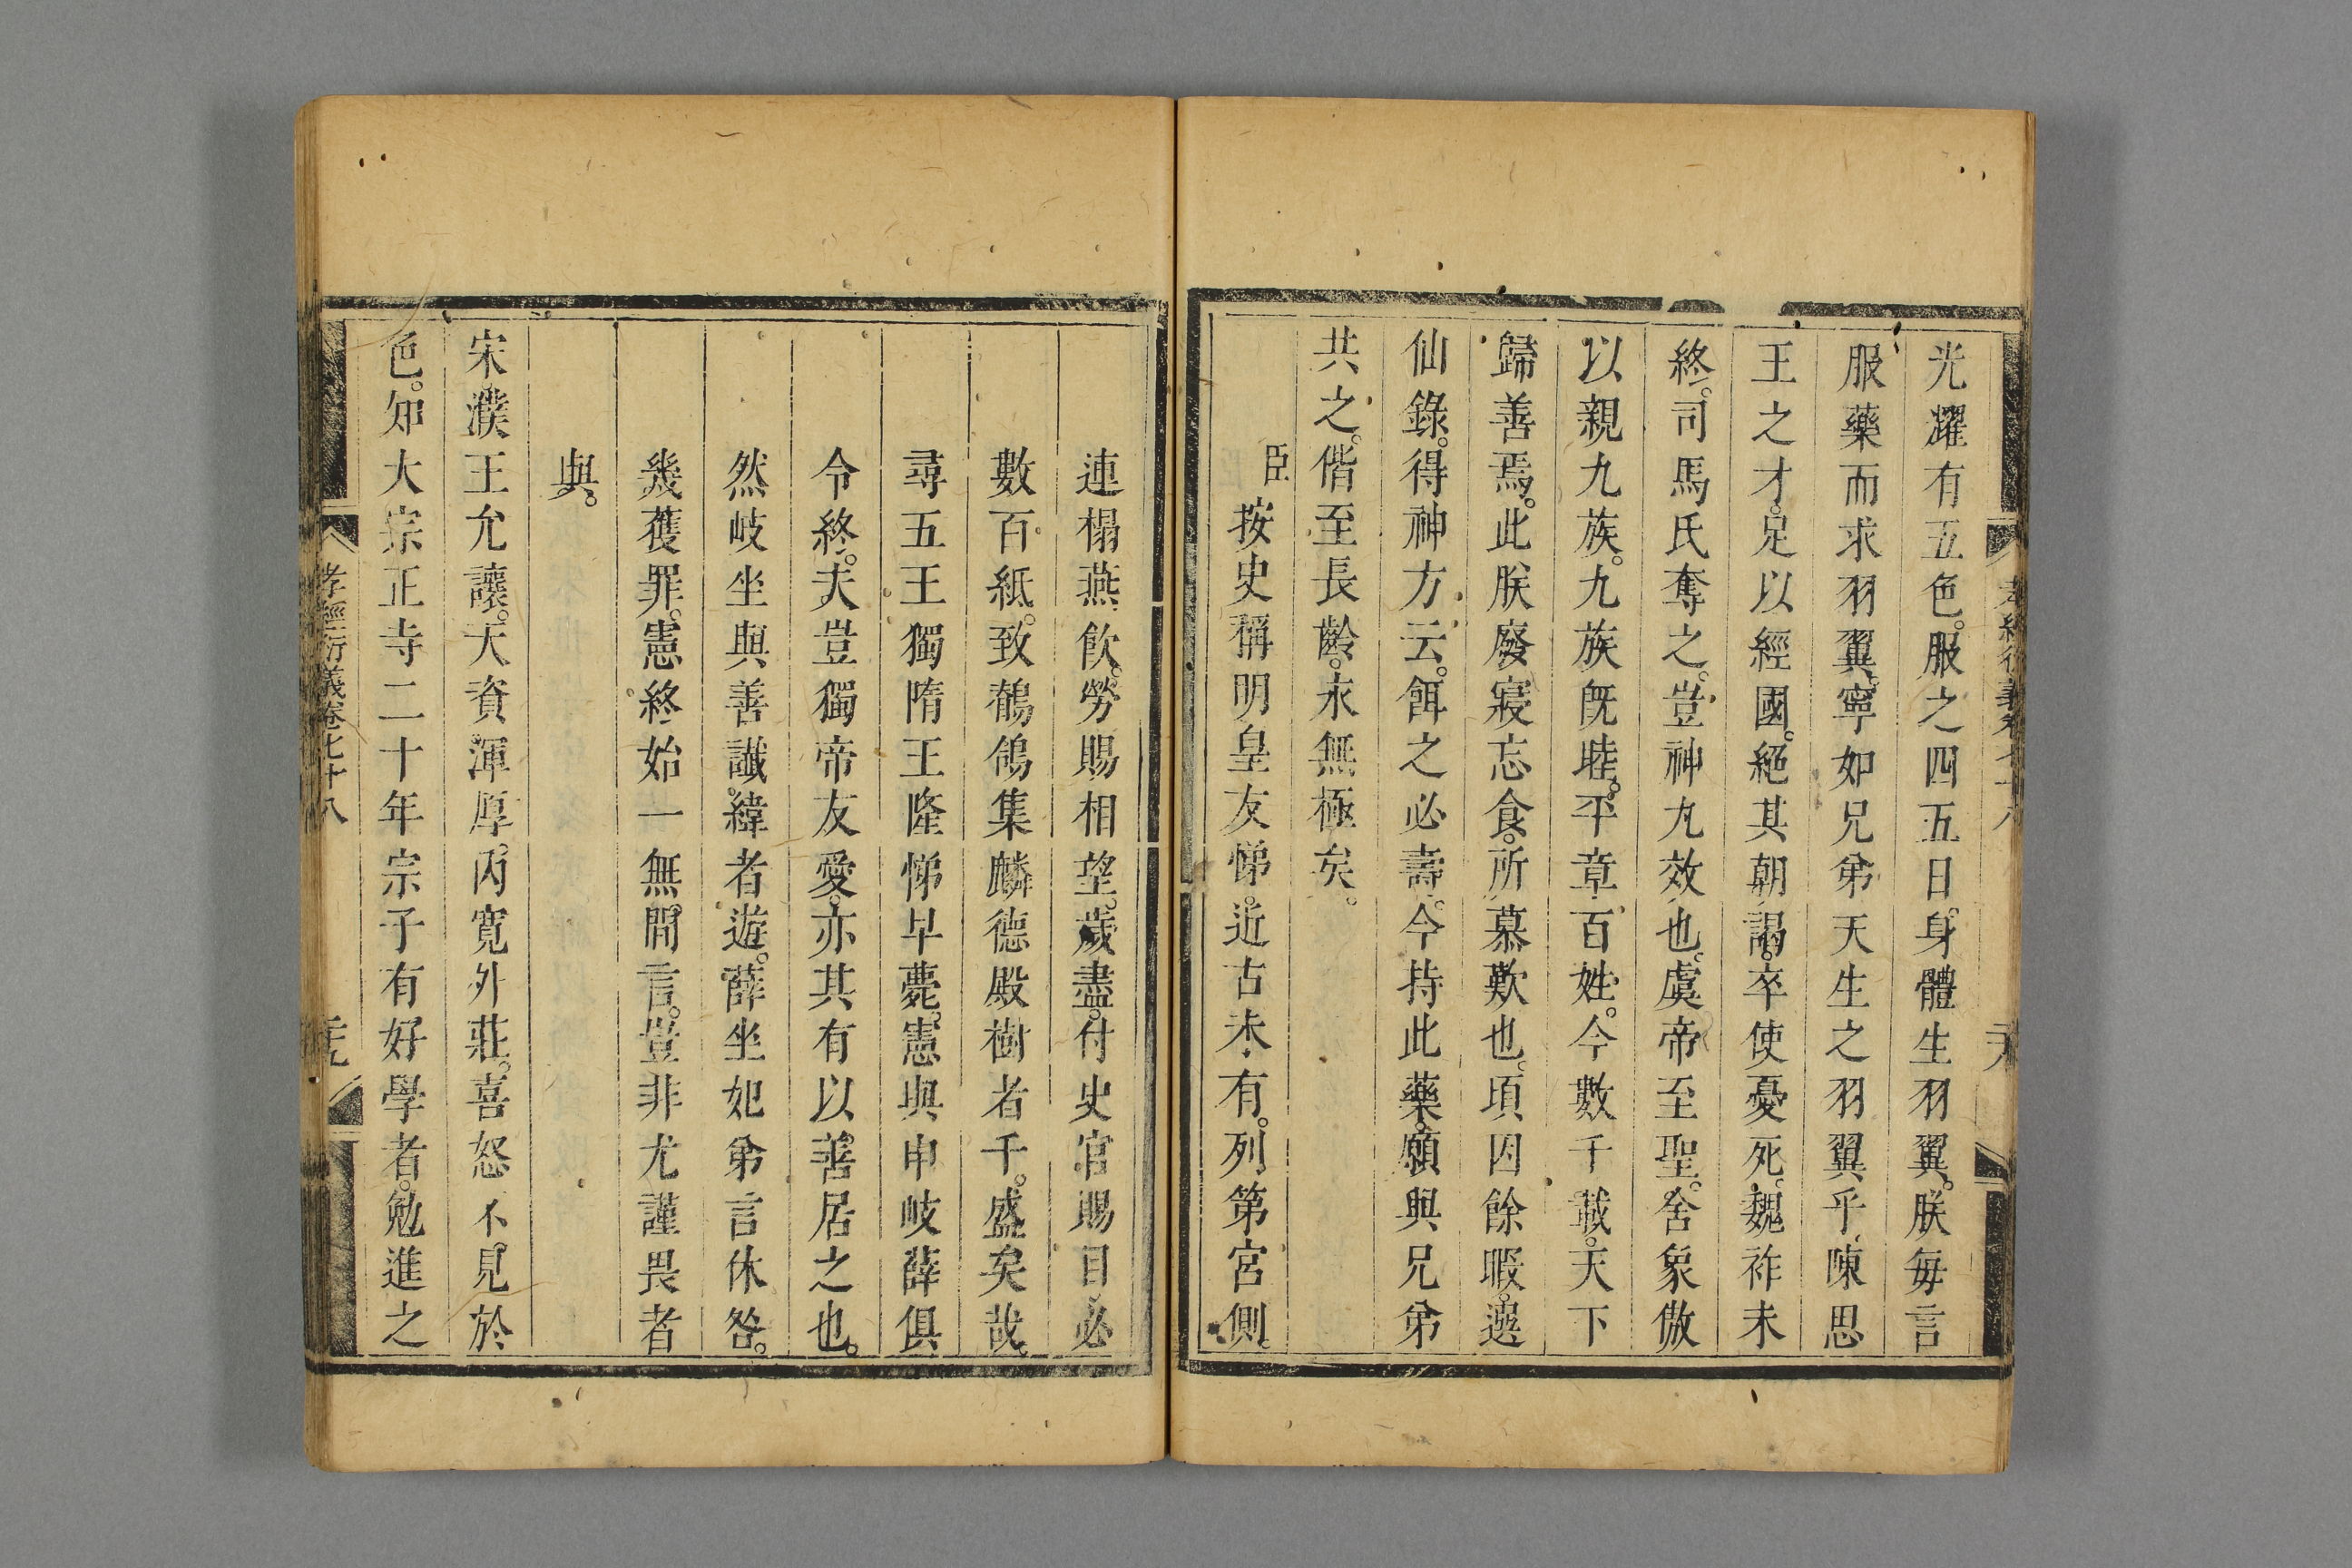 光耀有五色。服之四五日。身體生羽翼。朕每言
服藥而求羽翼。寧如兄弟天生之羽翼乎。陳思
王之才。足以經國。絕其朝謁。卒使憂死。魏祚未
終。司馬氏奪之。豈神丸效也。虞帝至聖。舍象傲
以親九族。九族旣睦。平章百姓。今數千載。天下
歸善焉。此朕廢寢忘食。所慕歎也。頃因餘暇。選
仙錄。得神方云。餌之必壽。今持此藥。願與兄弟
共之。偕至長齡。永無極矣。
臣按史稱明皇友悌。近古未有。列第宮側。
連榻燕飲。勞賜相望。歲盡。付史官賜目。必
數百紙。致鶺鴒集麟德殿樹者千。盛矣哉。
尋五王獨隋王隆悌早薨。憲與申岐薛俱
令終。夫豈獨帝友愛。亦其有以善居之也。
然岐坐與善讖緯者遊。薛坐妃弟言休咎。
幾獲罪。憲終始一無間言。豈非尤謹畏者
與。
宋濮王允讓。天資渾厚。內寬外莊。喜怒不見於
色。知大宗正寺二十年。宗子有好學者。勉進之
孝經衍義卷七十八